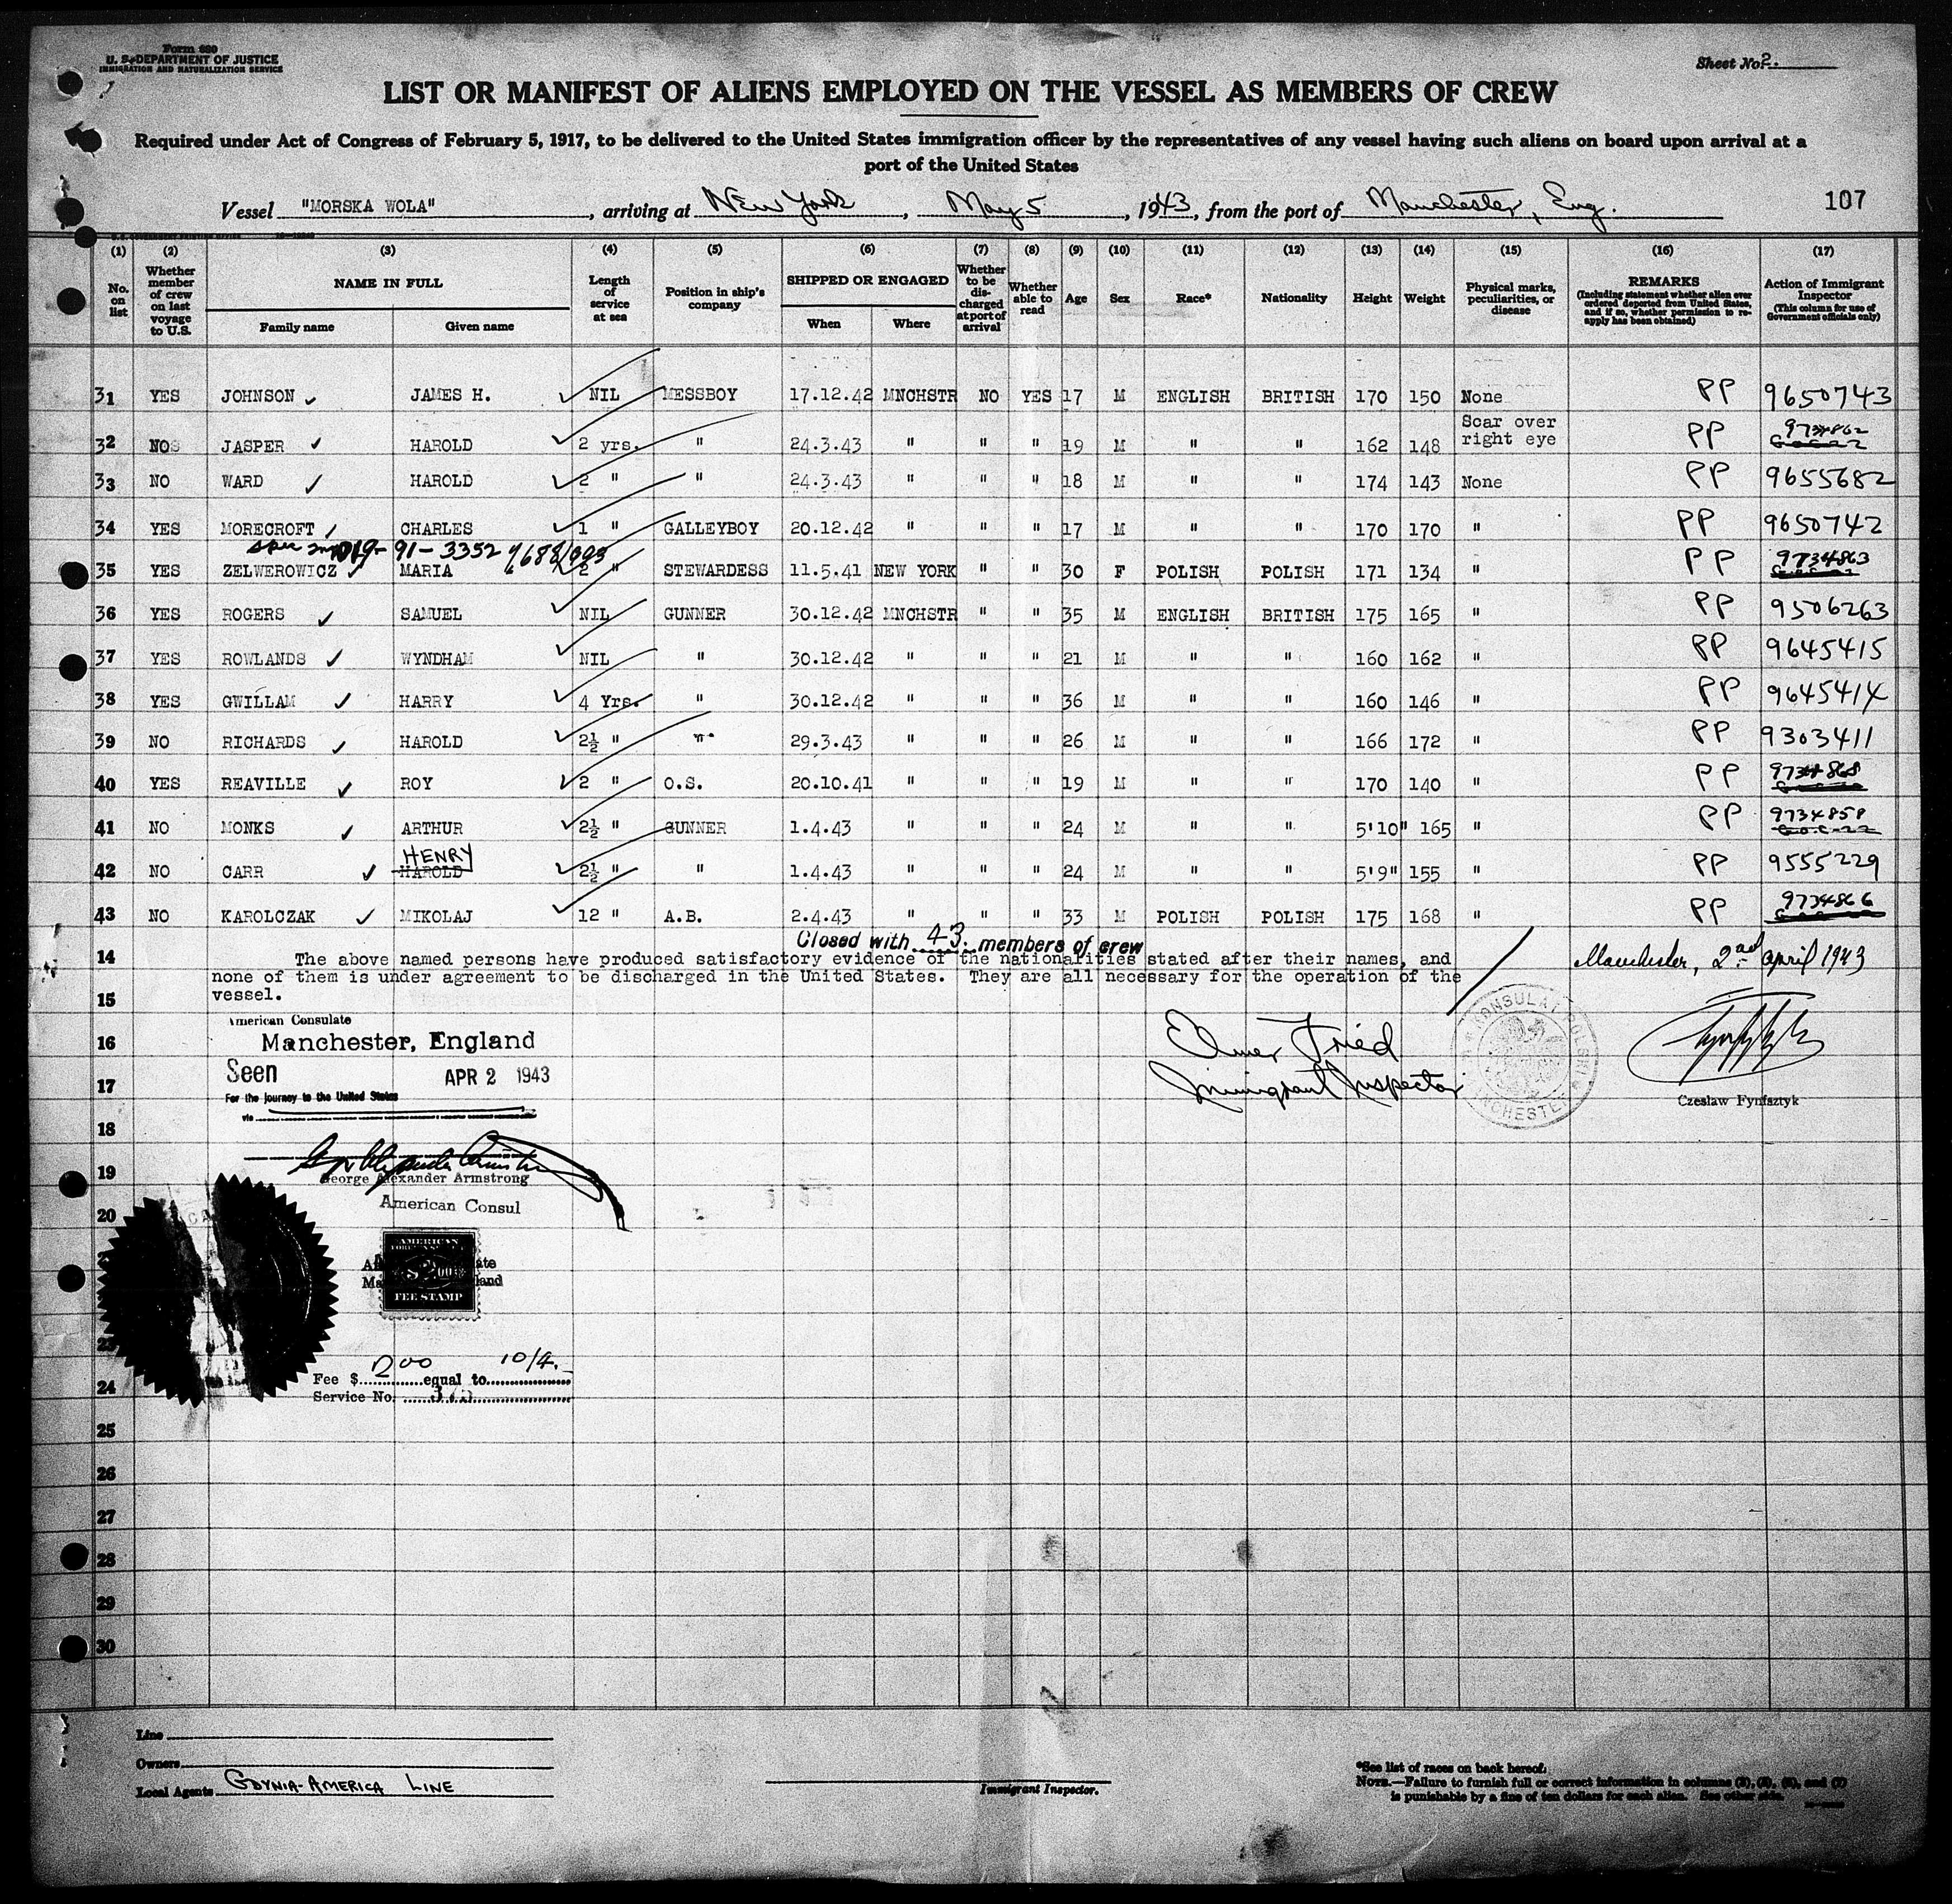 Form 680
U. S. DEPARTMENT OF JUSTICE
IMMIGRATION AND NATURALIZATION SERVICE
Sheet No. 2.
LIST OR MANIFEST OF ALIENS EMPLOYED ON THE VESSEL AS MEMBERS OF CREW
Required under Act of Congress of February 5, 1917, to be delivered to the United States immigration officer by the representatives of any vessel having such aliens on board upon arrival at a
port of the United States
Vessel "MORSKA WOLA", arriving at New York, May 5, 1943, from the port of Manchester, Eng.
107
(1) (2) (3) (4) (5) (6) (7) (8) (9) (10) (11) (12) (13) (14) (15) (16) (17)
No. on list
Whether member of crew on last voyage to U.S.
NAME IN FULL
Family name
Given name
Length of service at sea
Position in ship's company
SHIPPED OR ENGAGED
When
Where
Whether to be discharged at port of arrival
Whether able to read
Age
Sex
Race*
Nationality
Height
Weight
Physical marks, peculiarities, or disease
REMARKS
(Including statement whether alien ever ordered deported from United States, and if so, whether permission to reapply has been obtained)
Action of Immigrant Inspector
(This column for use of Government officials only)
31 YES JOHNSON JAMES H. NIL MESSBOY 17.12.42 MNCHSTR NO YES 17 M ENGLISH BRITISH 170 150 None PP 9650743
32 NO JASPER HAROLD 2 yrs. " 24.3.43 " " " 19 M " " 162 148 Scar over right eye PP 9734862
33 NO WARD HAROLD 2 " " 24.3.43 " " " 18 M " " 174 143 None PP 9655682
34 YES MORECROFT CHARLES 1 " GALLEYBOY 20.12.42 " " " 17 M " " 170 170 " PP 9650742
91-3352
35 YES ZELWEROWICZ MARIA 2 " STEWARDESS 11.5.41 NEW YORK " " 30 F POLISH POLISH 171 134 " PP 9734863
36 YES ROGERS SAMUEL NIL GUNNER 30.12.42 MNCHSTR " " 35 M ENGLISH BRITISH 175 165 " PP 9506263
37 YES ROWLANDS WYNDHAM NIL " 30.12.42 " " " 21 M " " 160 162 " PP 9645415
38 YES GWILLAM HARRY 4 Yrs. " 30.12.42 " " " 36 M " " 160 146 " PP 9645414
39 NO RICHARDS HAROLD 2½ " " 29.3.43 " " " 26 M " " 166 172 " PP 9303411
40 YES REAVILLE ROY 2 " O.S. 20.10.41 " " " 19 M " " 170 140 " PP 9734868
41 NO MONKS ARTHUR 2½ " GUNNER 1.4.43 " " " 24 M " " 5'10" 165 " PP 9734858
HENRY
42 NO CARR HAROLD 2½ " " 1.4.43 " " " 24 M " " 5'9" 155 " PP 9555229
43 NO KAROLCZAK MIKOLAJ 12 " A.B. 2.4.43 " " " 33 M POLISH POLISH 175 168 " PP 9734866
Closed with 43. members of crew
14 The above named persons have produced satisfactory evidence of the nationalities stated after their names, and
none of them is under agreement to be discharged in the United States. They are all necessary for the operation of the
15 vessel.
Manchester, 2nd April 1943
American Consulate
16 Manchester, England
Seen APR 2 1943
17
For the journey to the United States
via
Elmer Fried
Immigrant Inspector
KONSULAT POLSKI
MANCHESTER
Czeslaw Fynfsztyk
18
19
George Alexander Armstrong
American Consul
20
AMERICAN
FEE STAMP
Fee $ 200 equal to 10/4.
24
Service No. 375
25
26
27
28
29
30
Line
Owners
Local Agents GDYNIA-AMERICA LINE
Immigrant Inspector.
*See list of races on back hereof.
NOTE.—Failure to furnish full or correct information in columns (2), (3), (6), and (7)
is punishable by a fine of ten dollars for each alien. See other side.